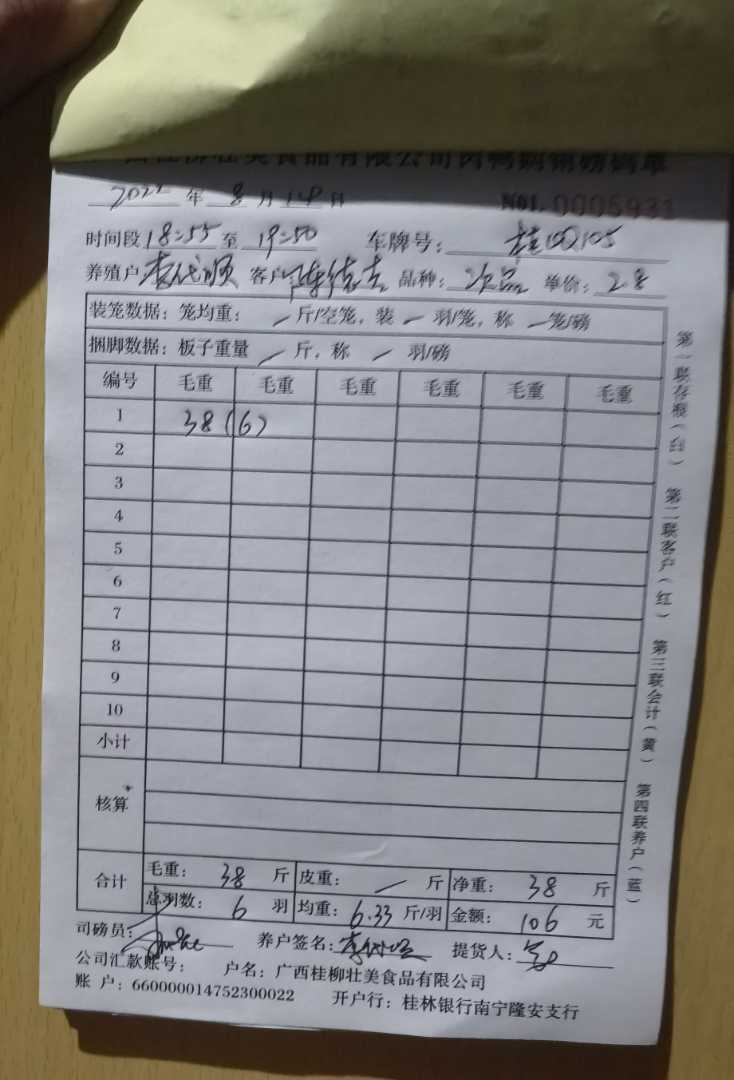 桂柳壮美食品有限公司肉鸭购销磅码单
2022年8月14日 NO1. 0005931
时间段18:55至19:50 车牌号:
养殖户李代顺 客户 品种: 次品 单价: 2.8
装笼数据: 笼均重: 斤/空笼, 装 羽/笼, 称 笼/磅
捆脚数据: 板子重量 斤, 称 羽/磅
编号 毛重 毛重 毛重 毛重 毛重 毛重
1 38(6)
2
3
4
5
6
7
8
9
10
小计
核算
合计 毛重: 38 斤 皮重: 斤 净重: 38 斤
总羽数: 6 羽 均重: 6.33 斤/羽 金额: 106 元
司磅员: 养户签名: 提货人:
公司汇款账号: 户名: 广西桂柳壮美食品有限公司
账 户: 660000014752300022 开户行: 桂林银行南宁隆安支行
第一联存根(白) 第二联客户(红) 第三联会计(黄) 第四联养户(蓝)